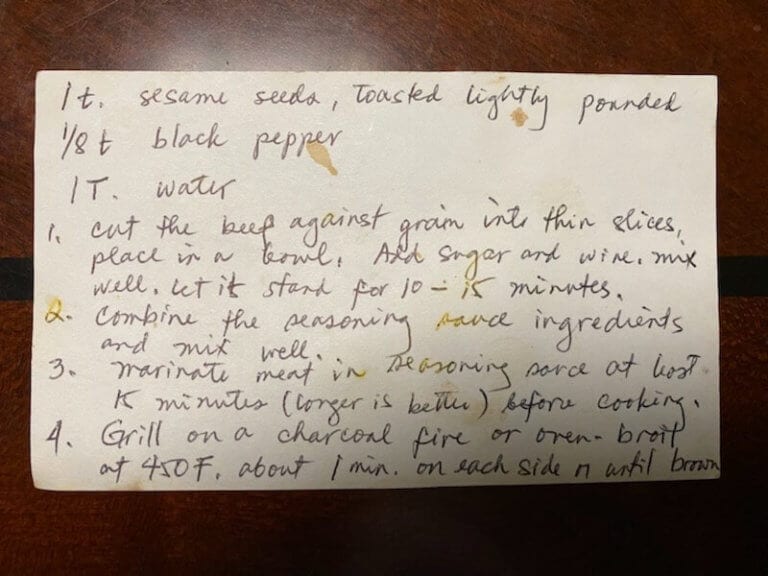 1 t. sesame seeds, Toasted lightly pounded
1/8 t black pepper
1 T. water
1. cut the beef against grain into thin slices,
place in a bowl. Add sugar and wine. mix
well. let it stand for 10 – 15 minutes.
2. Combine the seasoning sauce ingredients
and mix well.
3. marinate meat in seasoning sauce at least
15 minutes (longer is better) before cooking.
4. Grill on a charcoal fire or oven-broil
at 450 F. about 1 min. on each side or until brown